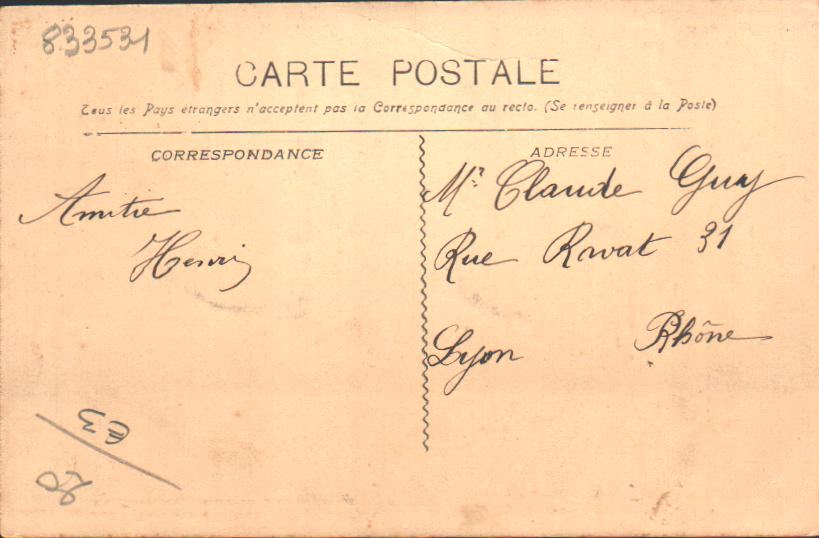 833531
CARTE POSTALE
Tous les Pays étrangers n'acceptent pas la Correspondance au recto. (Se renseigner à la Poste)
CORRESPONDANCE
Amitié
Henri
ADRESSE
Mr Claude Guy
Rue Rivat 31
Lyon Rhône
€3
20